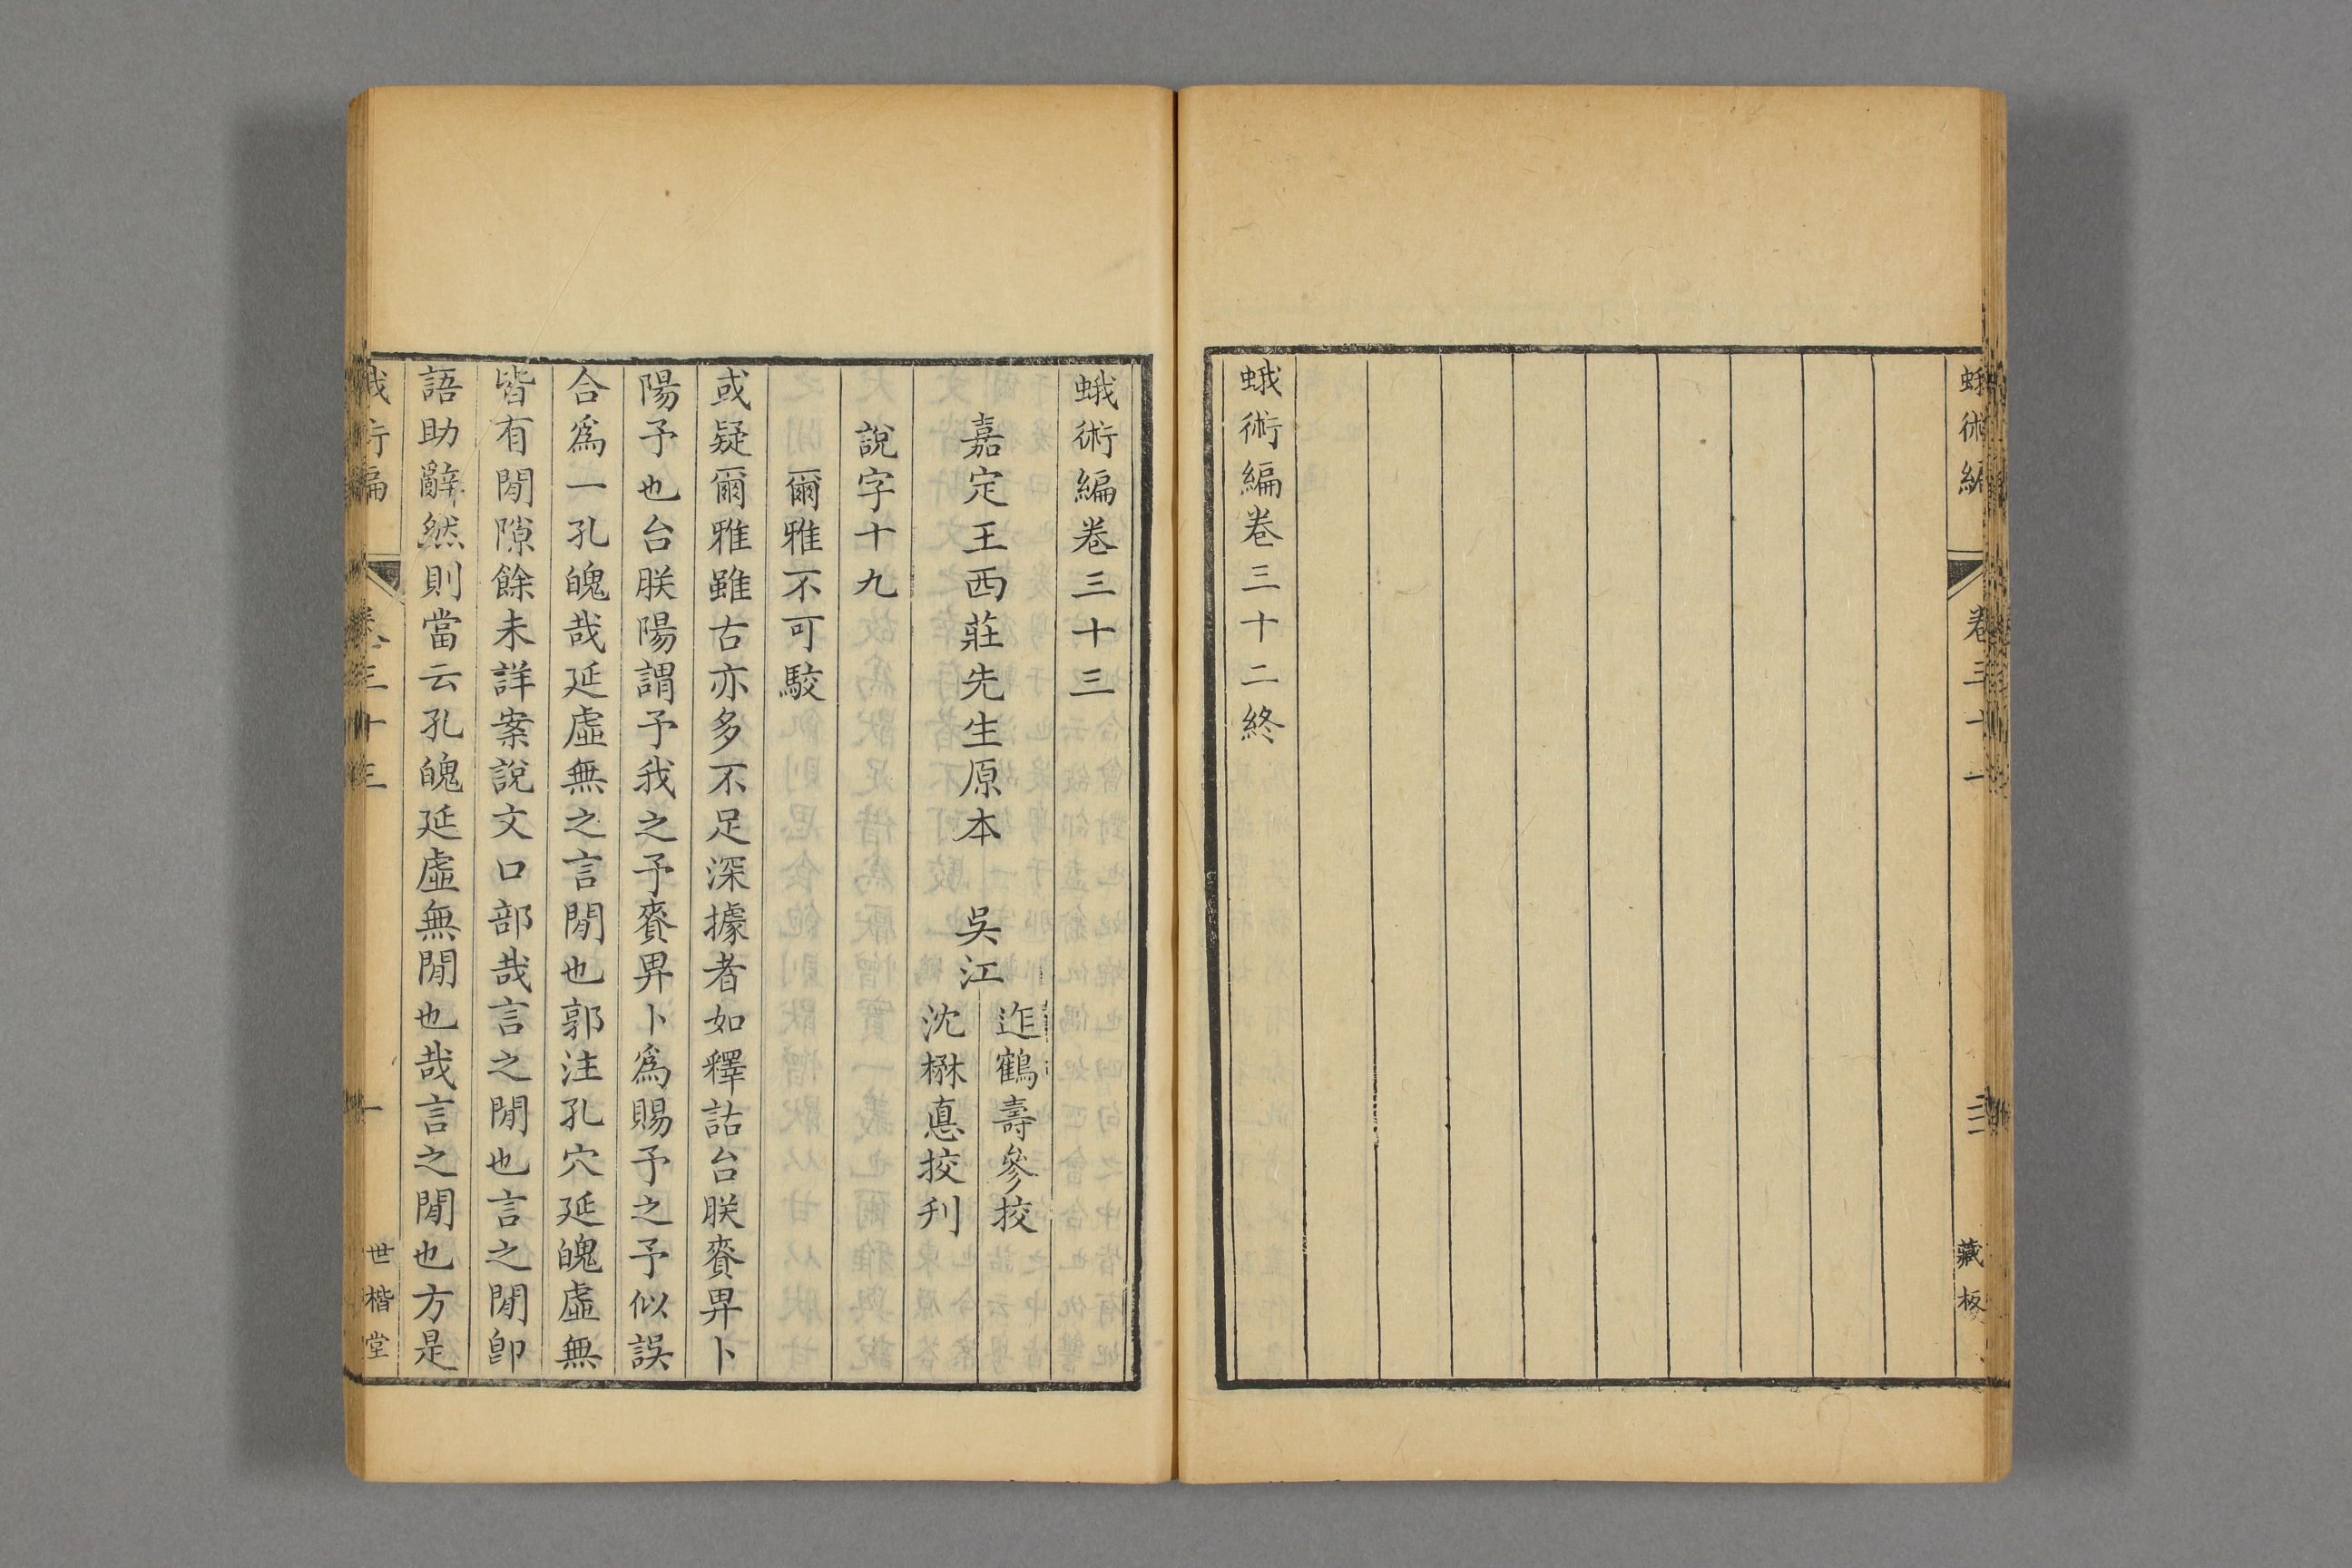 蛾術編
卷三十
藏板
蛾術編卷三十二終
蛾術編卷三十三
嘉定王西莊先生原本　吳江
迮鶴壽參挍
沈楙悳挍刋
說字十九
爾雅不可駮
或疑爾雅雖古亦多不足深據者如釋詁台朕賚畀卜
陽予也台朕陽謂予我之予賚畀卜爲賜予之予似誤
合爲一孔魄哉延虛無之言閒也郭注孔穴延魄虛無
皆有閒隙餘未詳案說文口部哉言之閒也言之閒卽
語助辭然則當云孔魄延虛無閒也哉言之閒也方是
卷三十三
一
世楷堂